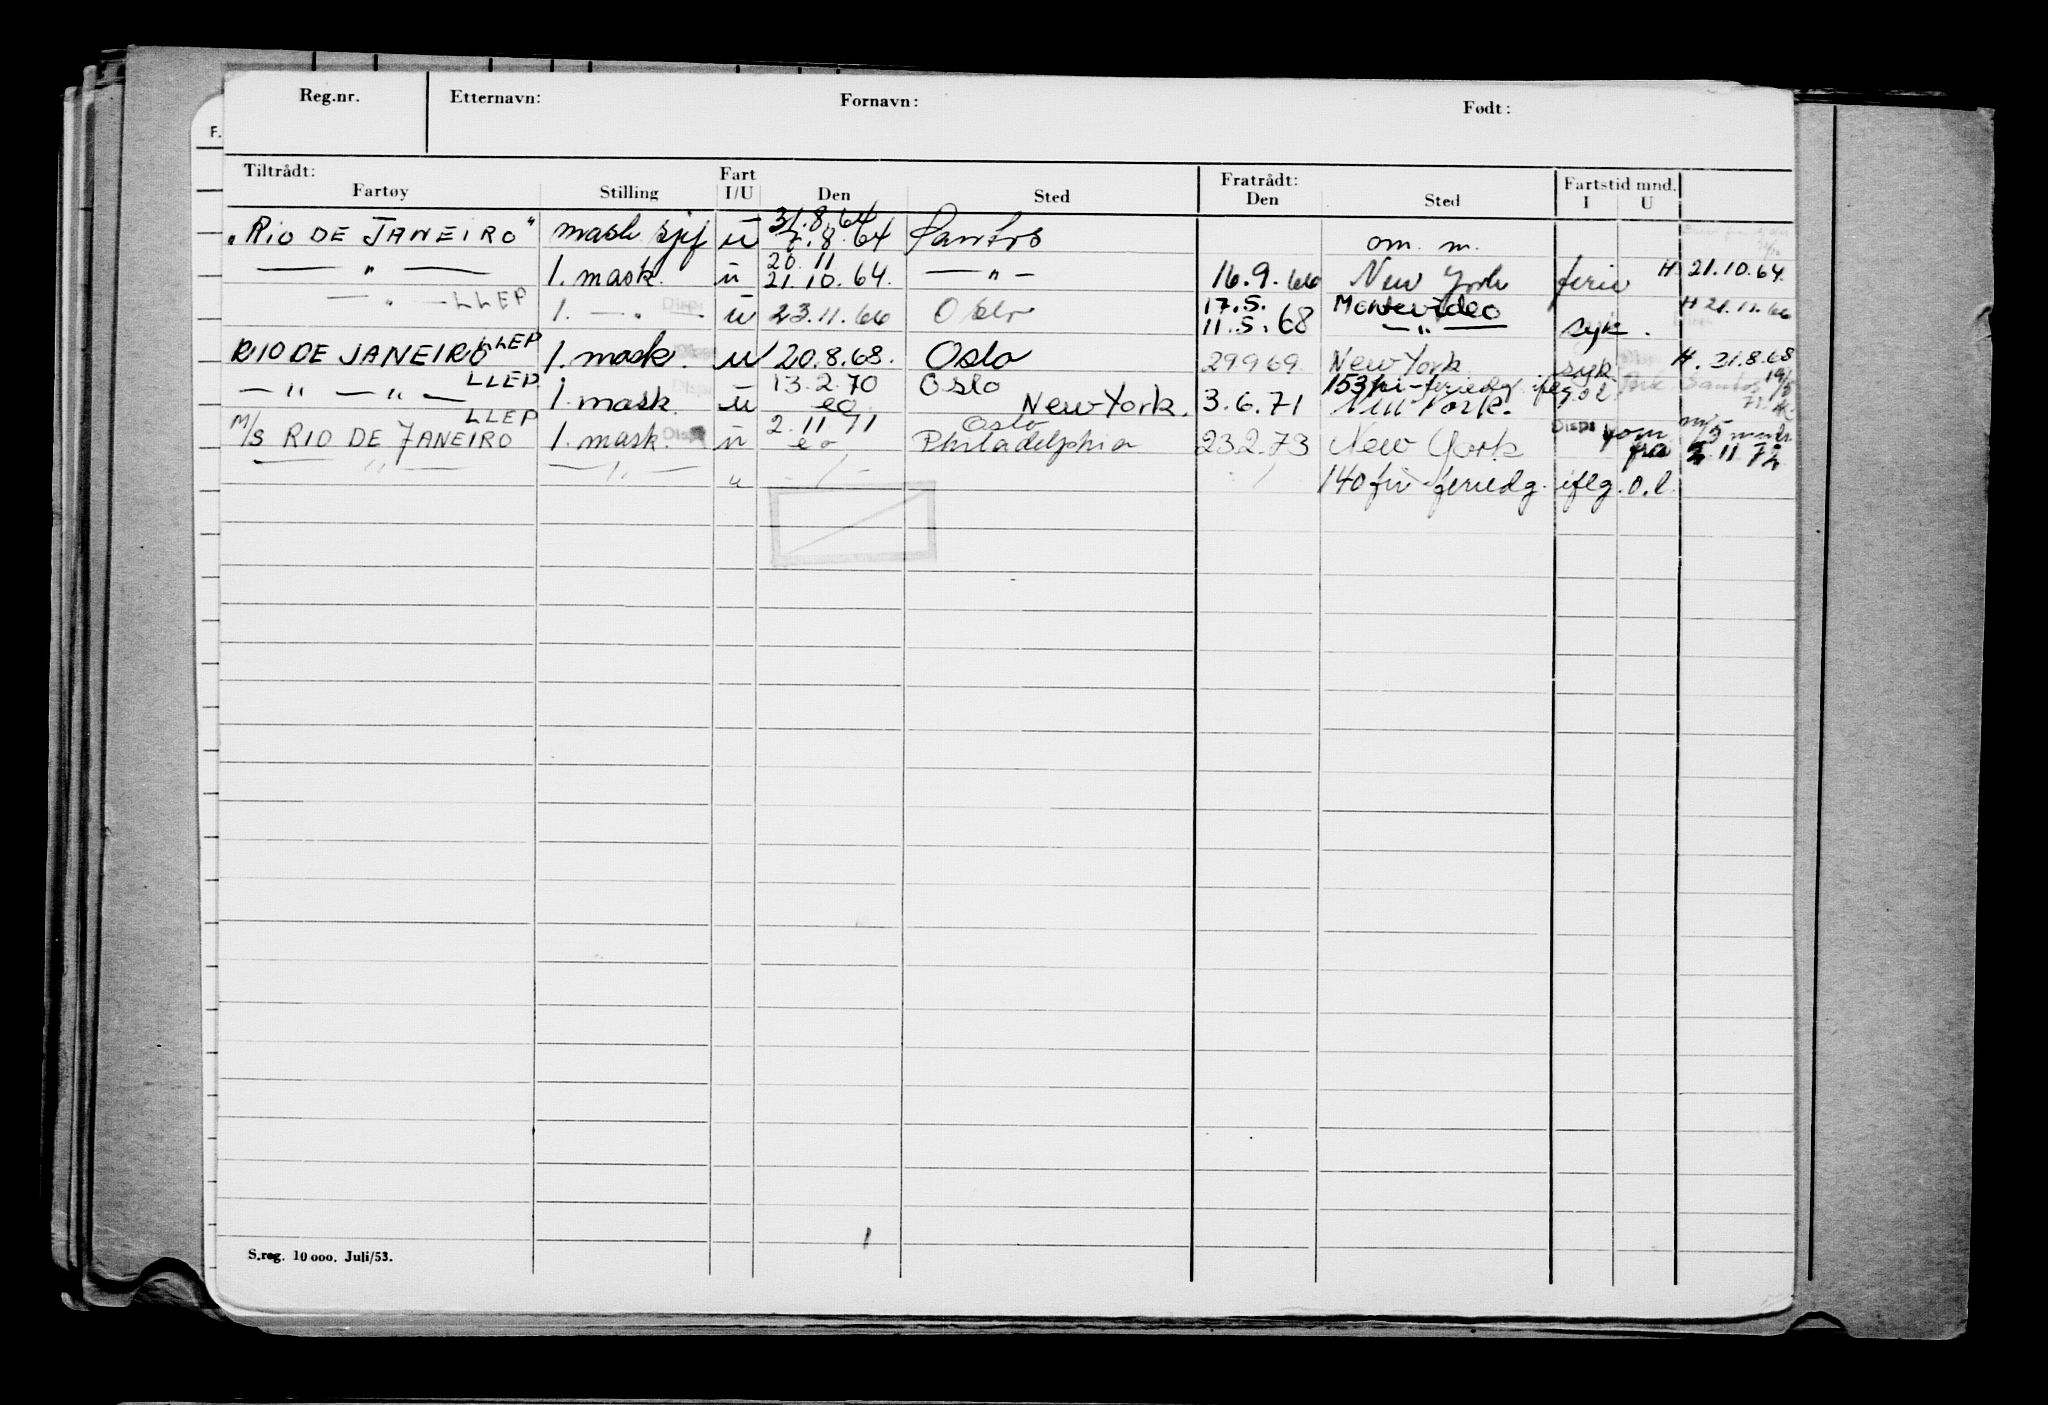 Reg.nr. Etternavn: Fornavn: Født:
F.
Tiltrådt: Fart Fratrådt: Fartstid mnd.
Fartøy Stilling I/U Den Sted Den Sted I U
31.8.64
"RIO DE JANEIRO" mask sjef u 7.8.64 Santos om. m.
20.11
— " — 1. mask. u 21.10.64. — " — 16.9.66 New York ferie H 21.10.64
— " — LLEP 1. — " — Disp u 23.11.66 Oslo 17.5. Montevideo H 21.11.66
11.5.68 — " — syk.
RIO DE JANEIRO LLEP 1. mask. u 20.8.68. Oslo 29969 New York syk H. 21.8.68
— " — " — LLEP 1. mask. u 13.2.70 Oslo 153 fri-feriedg. iflg. o.l Santos 19/5
eo New York. 3.6.71 New York.
M/S RIO DE JANEIRO LLEP 1. mask. Disp u 2.11.71 Oslo
eo Philadelphia 23.2.73 New York Disp fom m/5 mndr
— " — — " — " — / — / fra 2.11.72
140 fri-feriedg. iflg. o.l.
S.reg. 10 000. Juli/53.